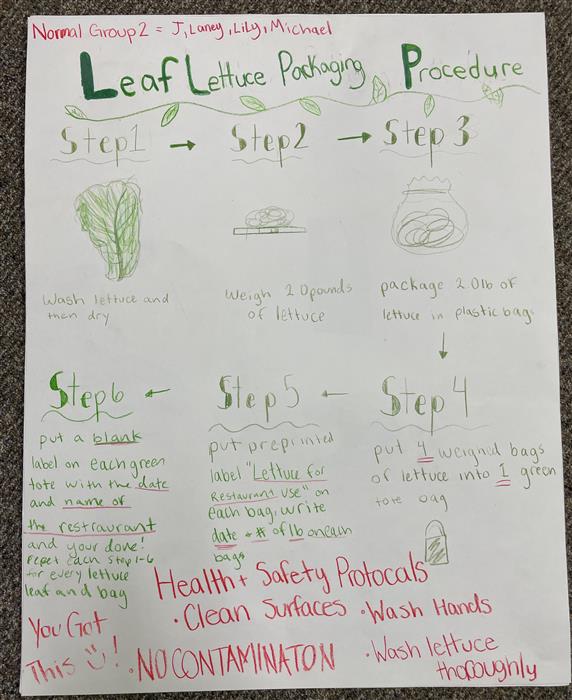 Normal Group 2 = J, Laney, Lily, Michael
Leaf Lettuce Packaging Procedure
Step 1 → Step 2 → Step 3
Wash lettuce and
then dry
Weigh 2.0 pounds
of lettuce
package 2.0 lb of
lettuce in plastic bags
↓
Step 4
put 4 weighed bags
of lettuce into 1 green
tote bag
← Step 5
put preprinted
label "Lettuce for
Restaurant Use" on
each bag, write
date + # of lb on each
bags
← Step 6
put a blank
label on each green
tote with the date
and name of
the restraurant
and your done!
repeat each step 1-6
for every lettuce
leaf and bag
Health + Safety Protocals
• Clean Surfaces • Wash Hands
• NO CONTAMINATON
• Wash lettuce
thoroughly
You Got
This !